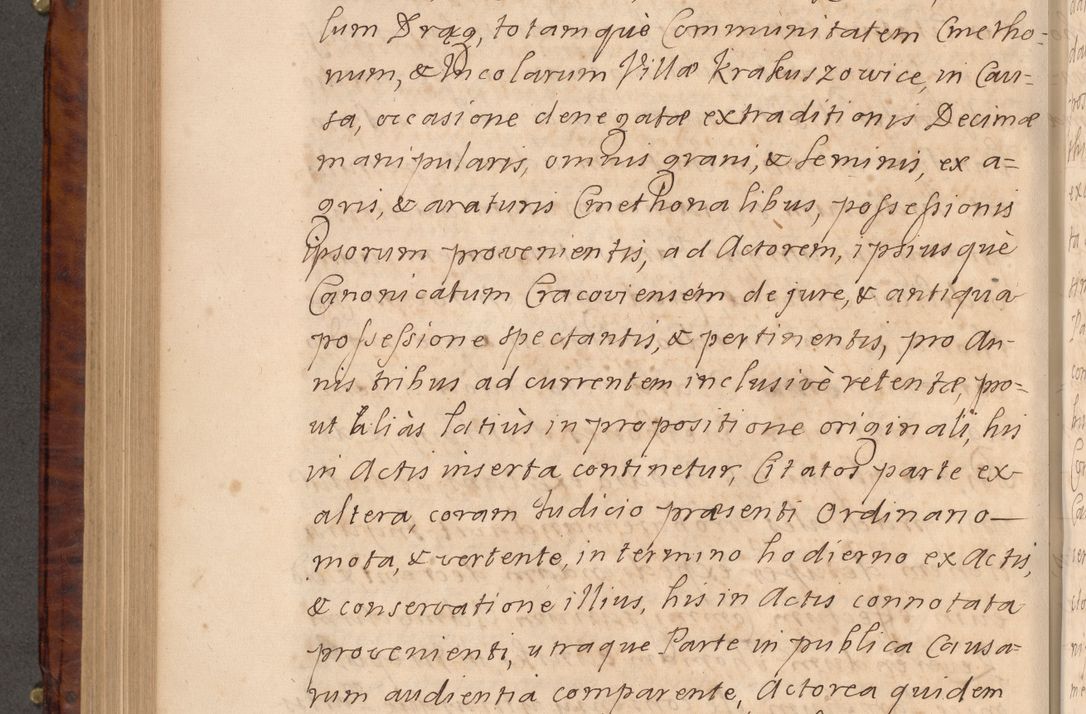 lum Drąg, totamquè Communitatem Cmetho-
num, & Incolarum Villæ Krakuszowice, in Cau-
sa, occasione denegatæ extraditionis Decimæ
manipularis, omnis grani, & seminis, ex a=
gris, & araturis Cmethonalibus, possessionis
ipsorum provenientis, ad Actorem, ipsiusquè
Canonicatum Cracoviensem de jure, & antiqua
possessione spectantis, & pertinentis, pro An-
nis tribus ad currentem inclusivè retentæ, pro=
ut aliàs latiùs in propositione originali, his
in Actis inserta continetur, Citatos parte ex
altera, coram Judicio præsenti Ordinario
mota, & vertente, in termino hodierno ex Actis,
& conservatione illius, his in Actis connotata
provenienti, utraque Parte in publica Causa=
rum audientia comparente, Actorea quidem